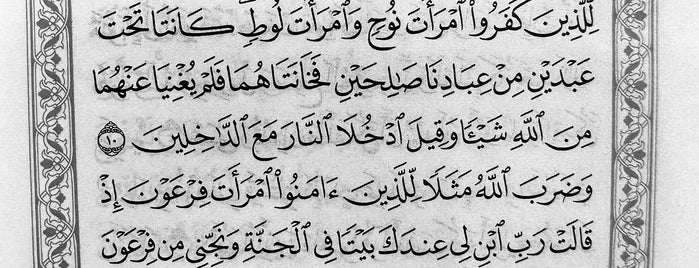 لِّلَّذِينَ كَفَرُواْ ٱمۡرَأَتَ نُوحٖ وَٱمۡرَأَتَ لُوطٖۖ كَانَتَا تَحۡتَ
عَبۡدَيۡنِ مِنۡ عِبَادِنَا صَٰلِحَيۡنِ فَخَانَتَاهُمَا فَلَمۡ يُغۡنِيَا عَنۡهُمَا
مِنَ ٱللَّهِ شَيۡـٔٗا وَقِيلَ ٱدۡخُلَا ٱلنَّارَ مَعَ ٱلدَّٰخِلِينَ ١٠
وَضَرَبَ ٱللَّهُ مَثَلٗا لِّلَّذِينَ ءَامَنُواْ ٱمۡرَأَتَ فِرۡعَوۡنَ إِذۡ
قَالَتۡ رَبِّ ٱبۡنِ لِي عِندَكَ بَيۡتٗا فِي ٱلۡجَنَّةِ وَنَجِّنِي مِن فِرۡعَوۡنَ